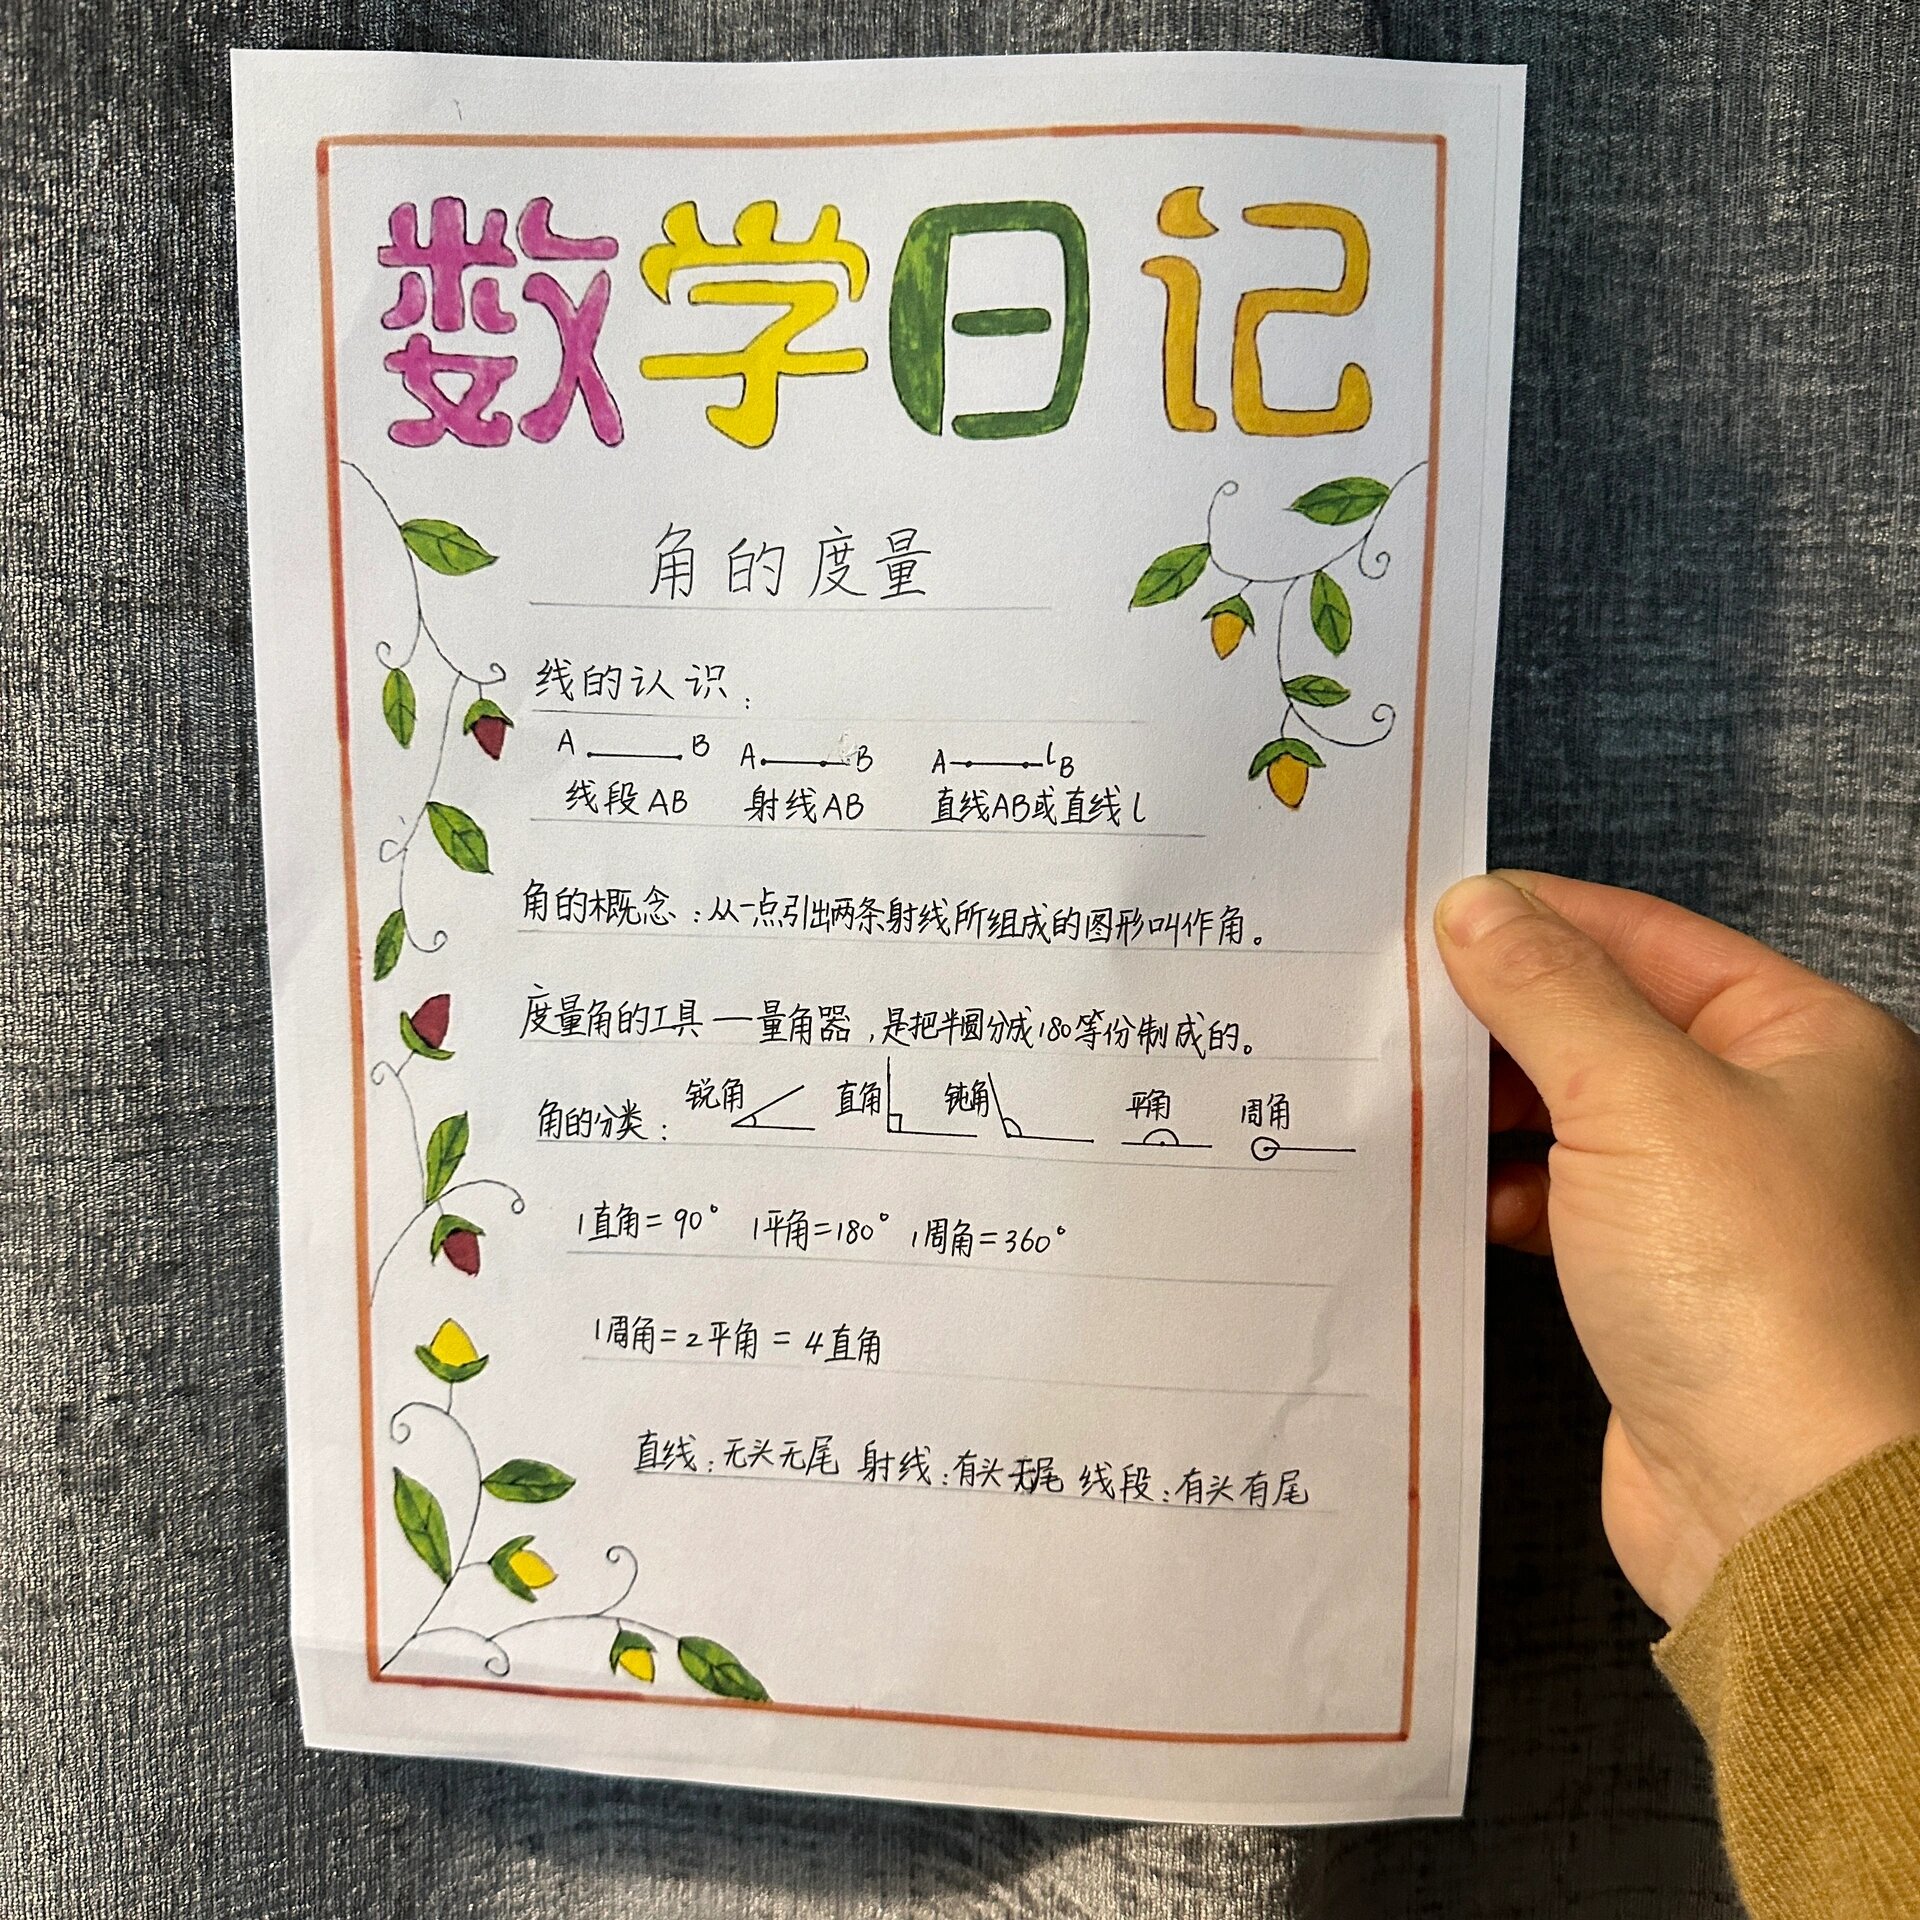 数学日记
角的度量
线的认识：
A B A B A l B
线段AB 射线AB 直线AB或直线l
角的概念：从一点引出两条射线所组成的图形叫作角。
度量角的工具一量角器，是把半圆分成180等份制成的。
角的分类： 锐角 直角 钝角 平角 周角
1直角=90° 1平角=180° 1周角=360°
1周角=2平角=4直角
直线：无头无尾 射线：有头无尾 线段：有头有尾